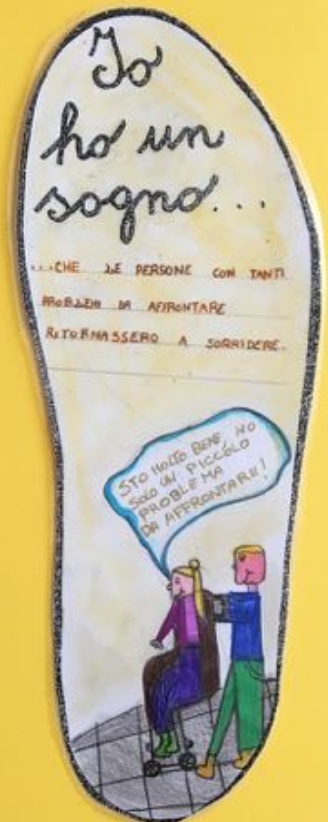 Io
ho un
sogno...
...CHE LE PERSONE CON TANTI
PROBLEMI DA AFFRONTARE
RITORNASSERO A SORRIDERE.
STO MOLTO BENE, HO
SOLO UN PICCOLO
PROBLEMA
DA AFFRONTARE!